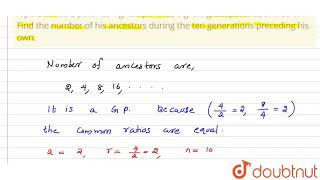 Find the number of his ancestors during the ten generations preceding his
own.
Number of ancestors are,
2, 4, 8, 16, ....
It is a G.P. Because (4/2 = 2, 8/4 = 2)
the common ratios are equal.
a = 2, r = 4/2 = 2, n = 10
doubtnut